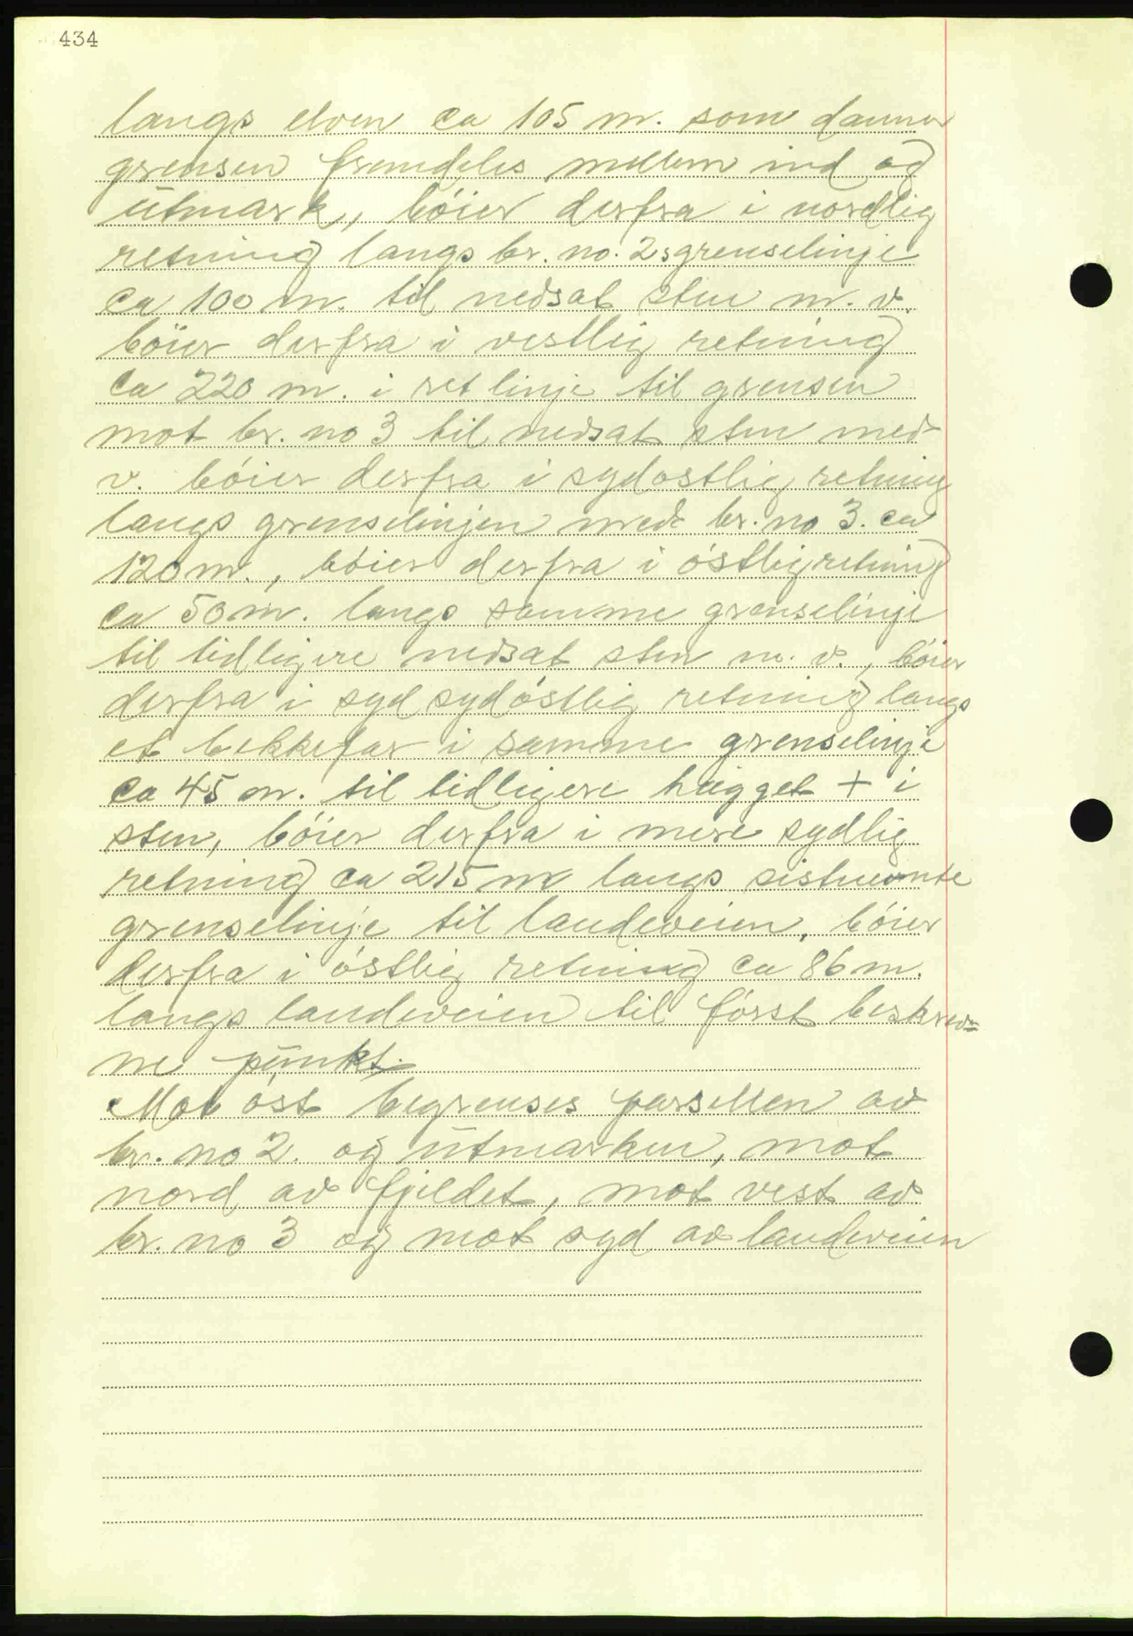 434
langs elven ca 105 m. som danner
grensen fremdeles mellem ind og
utmark, böier derfra i nordlig
retning langs br. no. 2s grenselinje
ca 100 m. til nedsat sten m. v.
böier derfra i vestlig retning
ca 220 m. i ret linje til grensen
mot br. no 3 til nedsat sten med
v. böier derfra i sydostlig retning
langs grenselinjen med br. no 3. ca
120 m., böier derfra i östlig retning
ca 50 m. langs samme grenselinje
til tidligere nedsat sten m. v., böier
derfra i syd sydöstlig retning langs
et bekkefar i samme grenselinje
ca 45 m. til tidligere hugget + i
sten, böier derfra i mere sydlig
retning ca 215 m langs sistnevnte
grenselinje til landeveien, böier
derfra i östlig retning ca 86 m.
langs landeveien til först beskrev-
ne punkt.
Mot öst begrenses parsellen av
br. no 2. og utmarken, mot
nord av fjeldet, mot vest av
br. no 3 og mot syd av landeveien